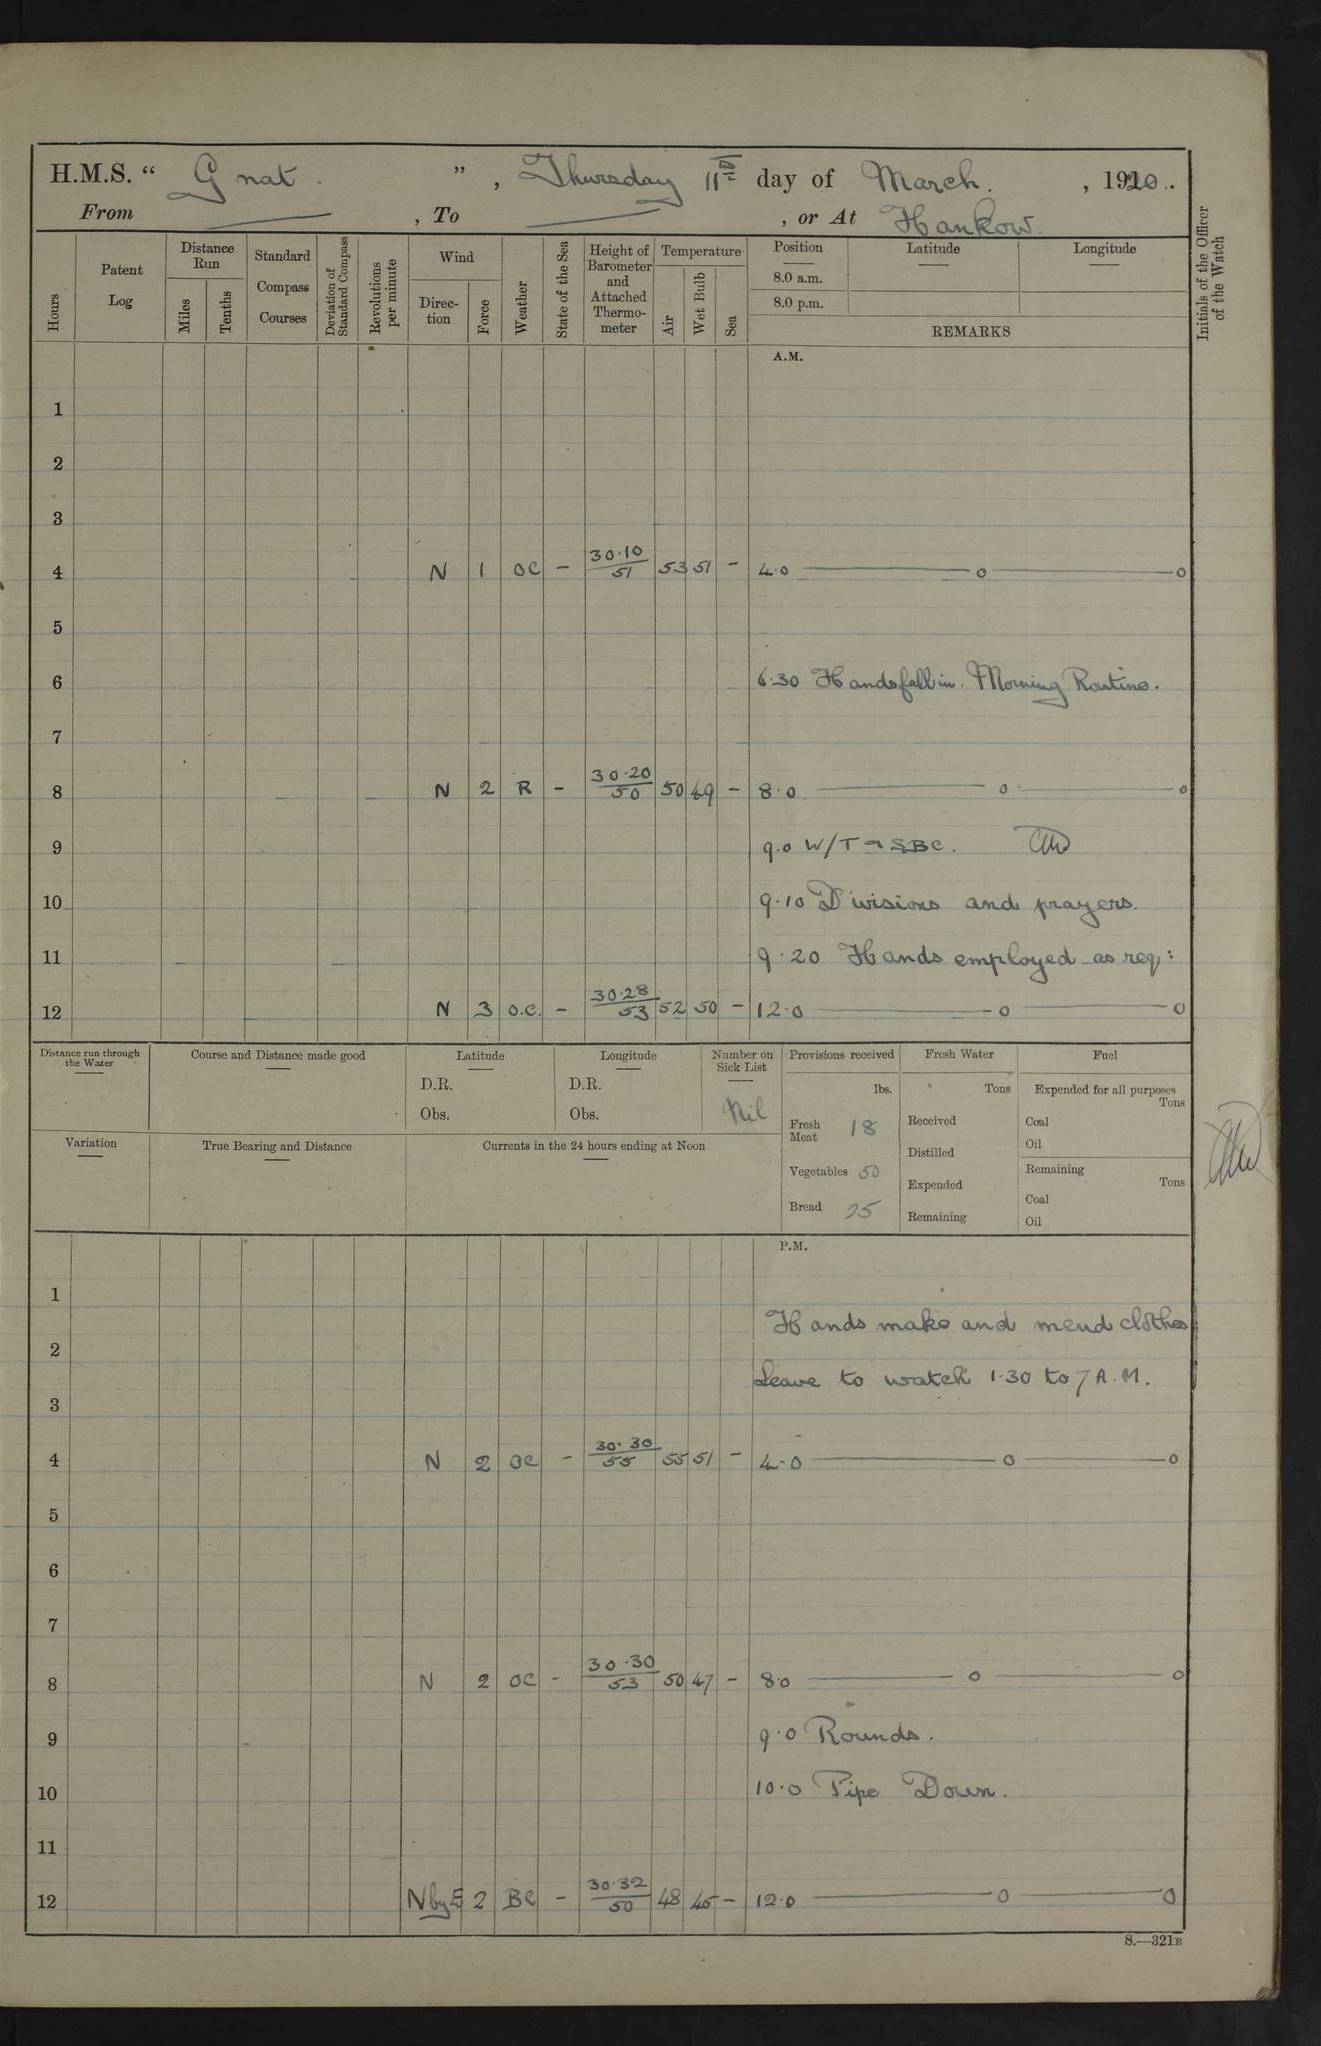 H.M.S. “ Gnat. ” , Thursday 11th day of March. , 1920.
From , To , or At Hankow.
Hours
Patent Log
Distance Run
Miles
Tenths
Standard Compass Courses
Deviation of Standard Compass
Revolutions per minute
Wind
Direction
Force
Weather
State of the Sea
Height of Barometer and Attached Thermo-meter
Temperature
Air
Wet Bulb
Sea
Position
8.0 a.m.
8.0 p.m.
Latitude
Longitude
REMARKS
Initials of the Officer of the Watch
A.M.
1
2
3
4 N 1 OC – 30·10/51 53 51 – 4·0 — o — o
5
6 6·30 Hands fall in. Morning Routine.
7
8 N 2 R – 30·20/50 50 49 – 8·0 — o — o
9 9·0 W/T SBC.
10 9·10 Divisions and prayers.
11 9·20 Hands employed as req:
12 N 3 O.C. – 30·28/53 52 50 – 12·0 — o — o
Distance run through the Water
Course and Distance made good
Latitude
D.R.
Obs.
Longitude
D.R.
Obs.
Number on Sick List
Nil
Provisions received
lbs.
Fresh Meat 18
Vegetables 50
Bread 25
Fresh Water
Tons
Received
Distilled
Expended
Remaining
Fuel
Expended for all purposes
Tons
Coal
Oil
Remaining
Tons
Coal
Oil
Variation
True Bearing and Distance
Currents in the 24 hours ending at Noon
P.M.
1
Hands make and mend clothes
2
Leave to watch 1·30 to 7 A.M.
3
4 N 2 OC – 30·30/55 55 51 – 4·0 — o — o
5
6
7
8 N 2 OC – 30·30/53 50 47 – 8·0 — o — o
9 9·0 Rounds.
10 10·0 Pipe Down.
11
12 N by E 2 BC – 30·32/50 48 45 – 12·0 — o — o
S.—321B